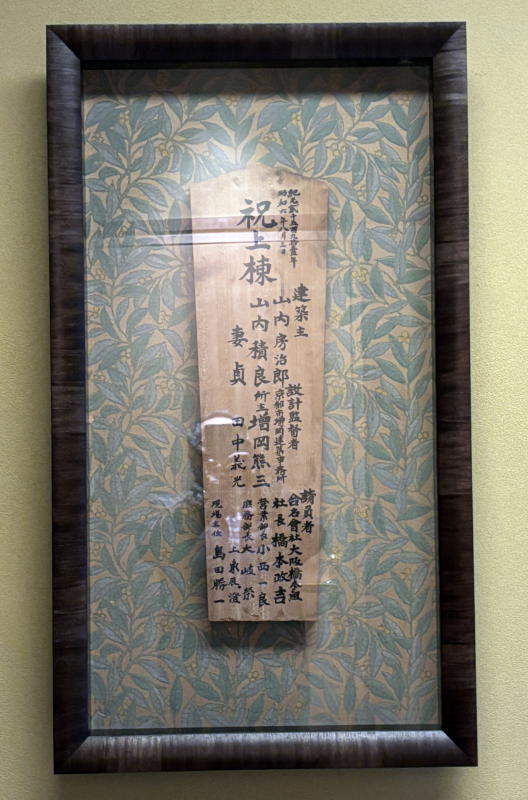 紀元貳千五百九拾壹年
昭和六年八月三日
祝上棟
建築主
山内房治郎
山内積良
妻貞
設計監督者
京都市増岡建築事務所
所主増岡熊三
田中義光
請負者
合名會社大阪橋本組
社長橋本政吉
営業部長小西一良
庶務部長大崎
現場主任島田勝一